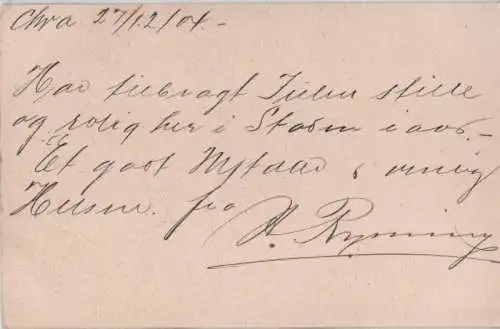 Chra 27/12/04.-
Har tilbragt Julen stille
og rolig her i Staden i aar.-
Et godt Nytaar & venlig
Hilsen fra
Ryning